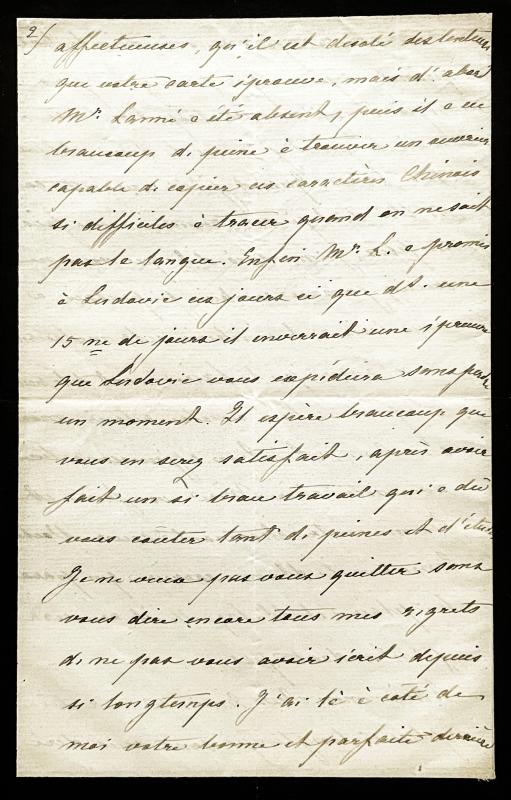 2/
affectueuses, qu'il est désolé des lenteurs
que votre carte éprouve, mais d'abord
Mr. Lanné a été absent, puis il a eu
beaucoup de peine à trouver un ouvrier
capable de copier ces caractères Chinois
si difficiles à tracer quand on ne sait
pas la langue. Enfin Mr. L. a promis
à Ludovic ces jours ci que ds. une
15ne de jours il enverrait une épreuve
que Ludovic vous expédiera sans perdre
un moment. Il espère beaucoup que
vous en serez satisfait, après avoir
fait un si beau travail qui a dû
vous coûter tant de peines et d'études
Je ne veux pas vous quitter sans
vous dire encore tous mes regrets
de ne pas vous avoir écrit depuis
si longtemps. J'ai là à côté de
moi votre bonne et parfaite dernière